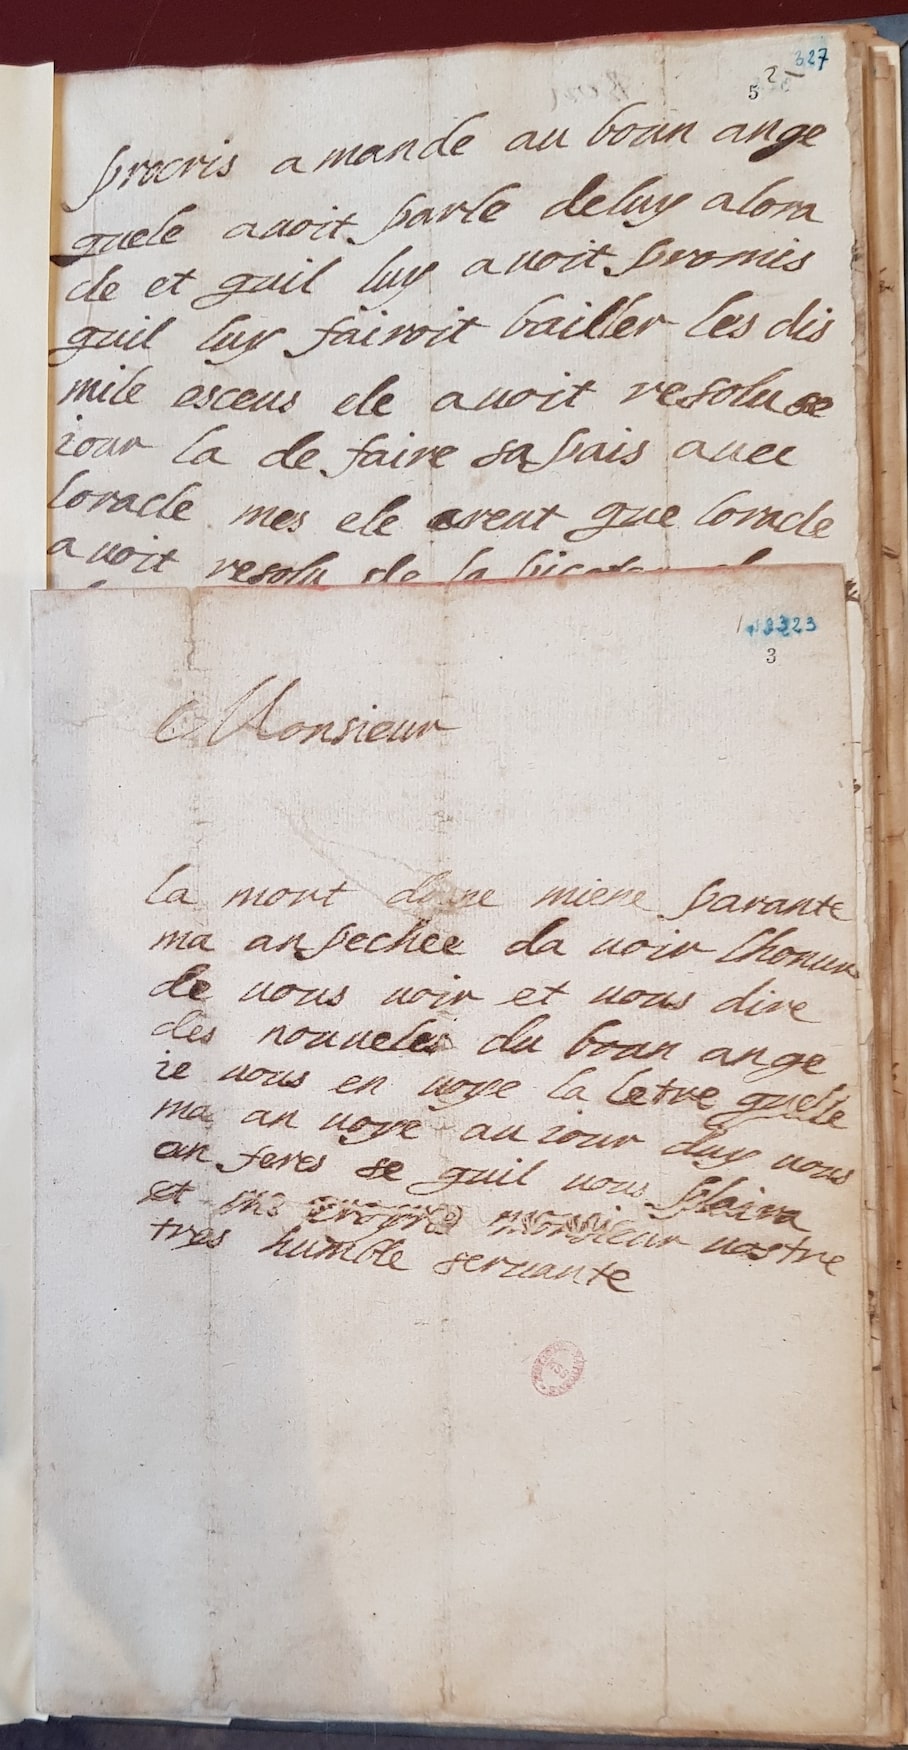 327
2
5
procris a mande au boun ange
quele auoit parle deluy alora
cle et quil luy auoit promis
quil luy fairoit bailler les dis
mile esceus ele auoit resolu se
iour la de faire sa pais auec
loracle mes ele creut que loracle
auoit resolu de la
323
3
Monsieur
la mort dune miene parante
ma anpechee da uoir lhonur
de uous uoir et uous dire
des nouueles du boun ange
ie uous en uoye la letre quele
ma an uoye au iour duy uous
an feres se quil uous plaira
et me croyres monsieur uostre
tres humble seruante